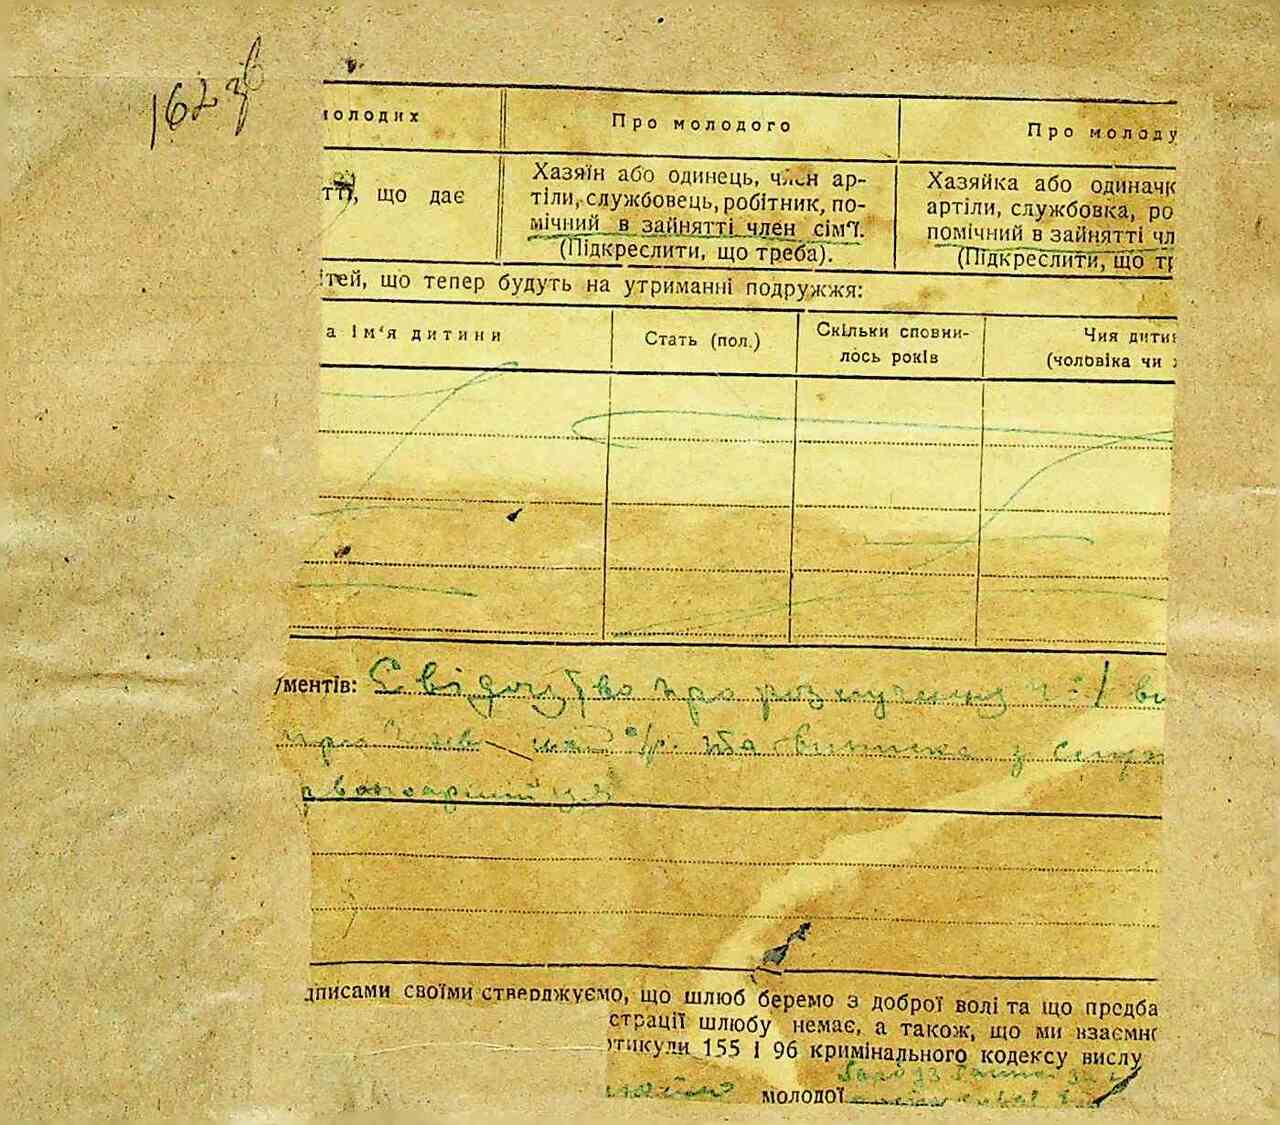 162 зв
молодих Про молодого Про молоду
тті, що дає
Хазяїн або одинець, член ар-
тіли, службовець, робітник, по-
мічний в зайнятті член сім'ї.
(Підкреслити, що треба).
Хазяйка або одиначк
артіли, службовка, ро
помічний в зайнятті чл
(Підкреслити, що тр
ітей, що тепер будуть на утриманні подружжя:
а ім'я дитини
Стать (пол.)
Скільки сповни-
лось років
Чия дити
(чоловіка чи
ументів: Свідоцтво про розлучення ч. 1 ви
та виписка з
дписами своїми стверджуємо, що шлюб беремо з доброї волі та що предба
страції шлюбу немає, а також, що ми взаємно
ртикули 155 і 96 кримінального кодексу вислу
молодої